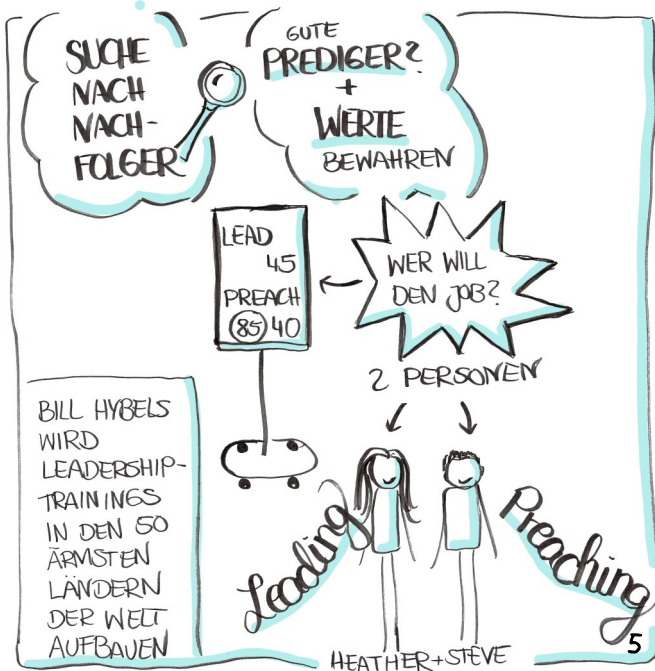 SUCHE
NACH
NACH-
FOLGER
GUTE
PREDIGER?
+
WERTE
BEWAHREN
LEAD
45
PREACH
85 40
WER WILL
DEN JOB?
2 PERSONEN
BILL HYBELS
WIRD
LEADERSHIP-
TRAININGS
IN DEN 50
ÄRMSTEN
LÄNDERN
DER WELT
AUFBAUEN
Leading
Preaching
HEATHER+STEVE
5